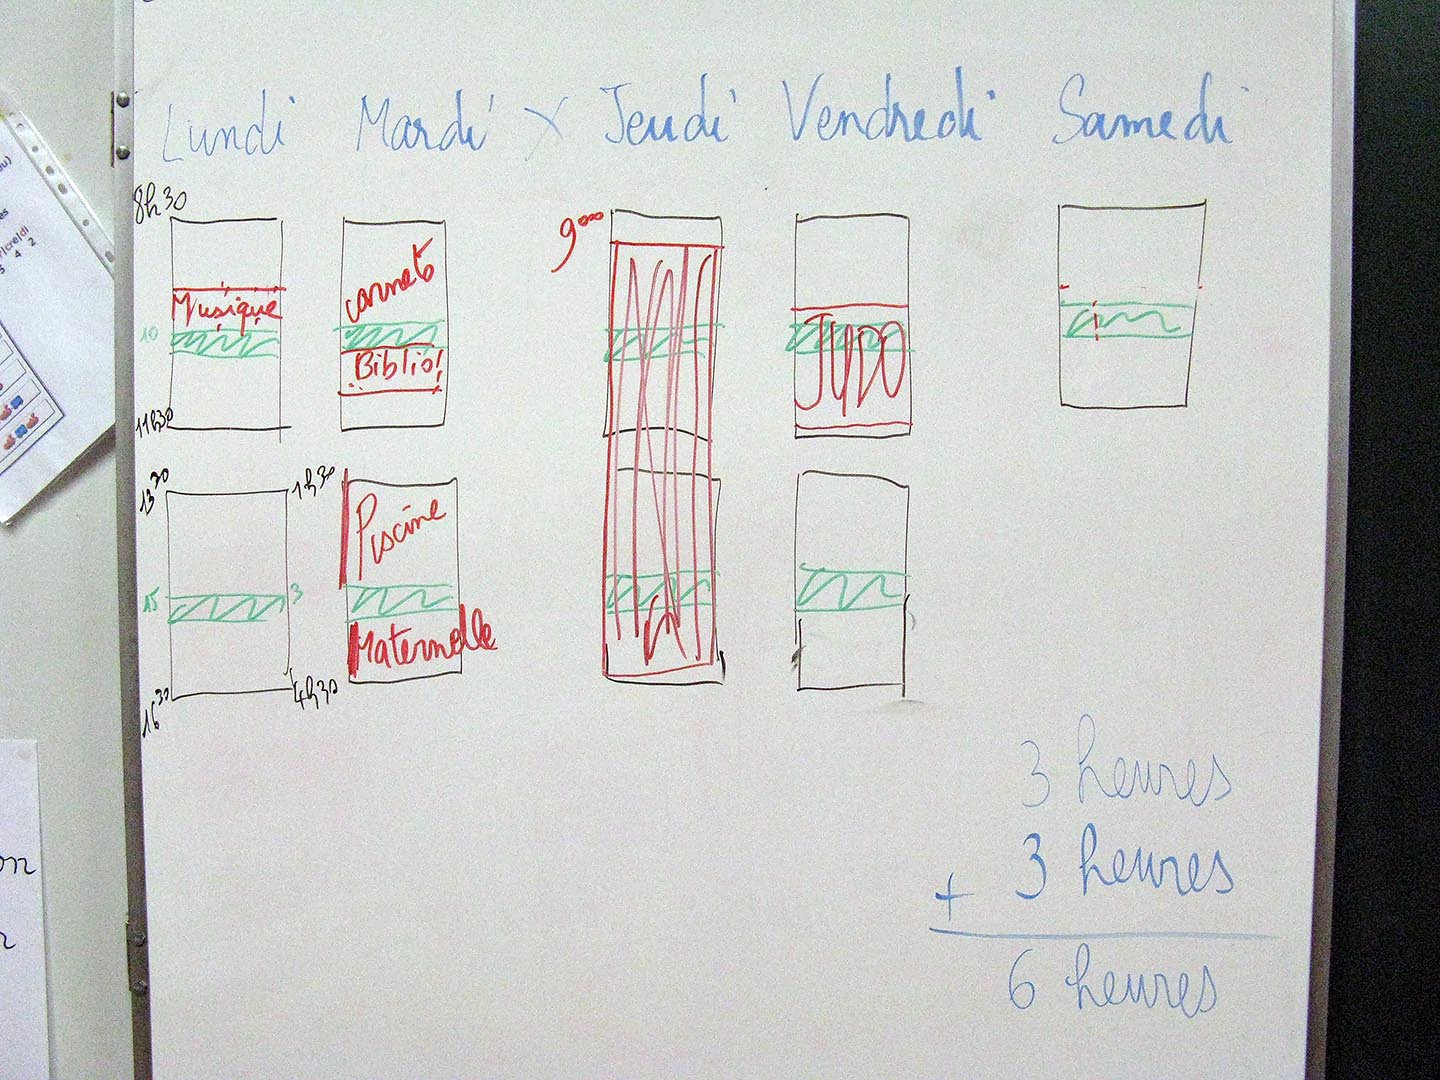 Lundi Mardi X Jeudi Vendredi Samedi
8h30
9°°°
carnets
Musique
10
JUDO
Biblio!
11h30
13 30
1h30
Piscine
15
3
Maternelle
16 30
4h30
3 heures
+ 3 heures
6 heures
on